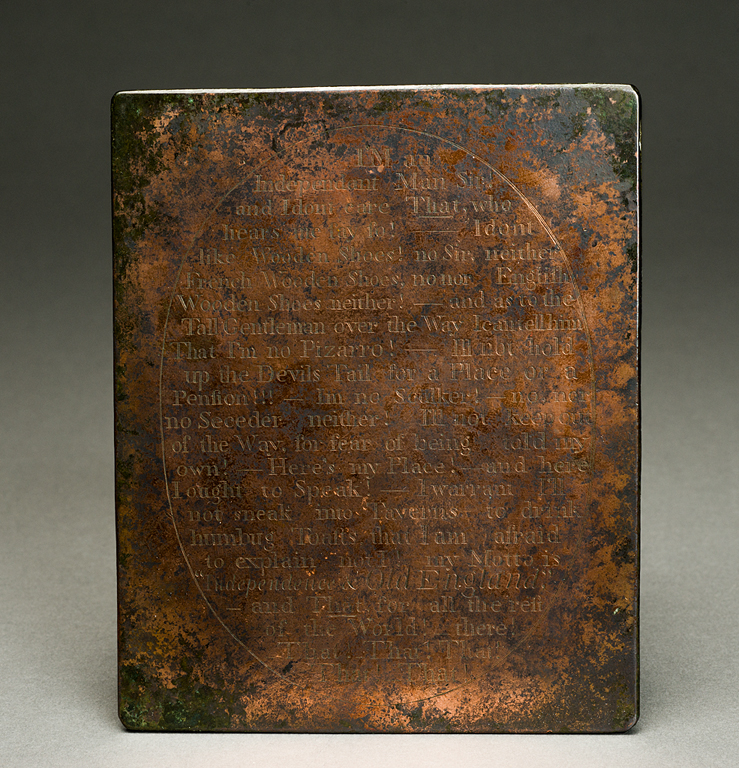 I'M an
Independant Man Sir!
and I dont care That, who
hears me say so! — I dont
like Wooden Shoes! no Sir, neither
French Wooden Shoes, no nor English
Wooden Shoes neither! — and as to the
Tall Gentleman over the Way I can tell him
That I'm no Pizarro! — I'll not hold
up the Devils Tail, for a Place or a
Penſion!!! — Im no Sculker! — no, nor
no Seceder neither! I'll not keep out
of the Way, for fear of being told my
own! — Here's my Place! — and here
I ought to Speak! — I warrant I'll
not sneak into Taverns to drink
humbug Toasts that I am afraid
to explain not I! my Motto is
"Independence & Old England"
— and That, for all the reſt
of the World! there!
That! That! That!
That! That!